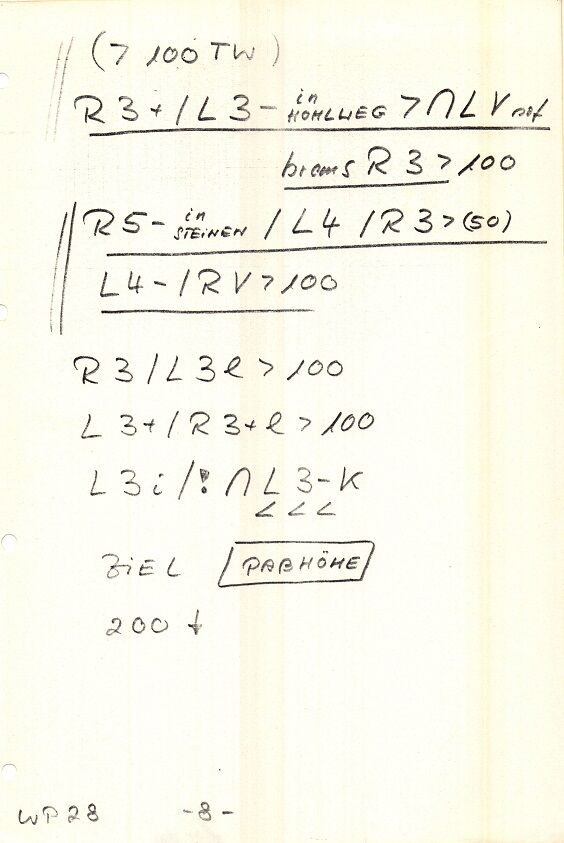 (> 100 TW)
R3+/L3- in HOHLWEG > ∩ LV
brems R3 > 100
R5- in STEINEN / L4 / R3 > (50)
L4-/RV > 100
R3/L3l > 100
L3+/R3+l > 100
L3i/! ∩ L3-K
< < <
ZIEL PAßHÖHE
200 ↓
WP28 -8-